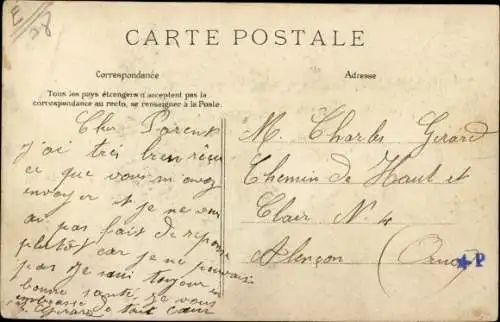 E/28
CARTE POSTALE
Correspondance
Adresse
Tous les pays étrangers n'acceptent pas la
correspondance au recto, se renseigner à la Poste.
Cher Parent
j'ai très bien reçu
ce que vous m'avez
envoyer et je ne vous
ai pas fait de reponse
plutôt car je ne pouvais
pas je suis toujour en
bonne santé je vous
embrasse de tout cœur
Gerard
M. Charles Gerard
Chemin de Haut et
Clair N. 4
Alençon (Orne)
P